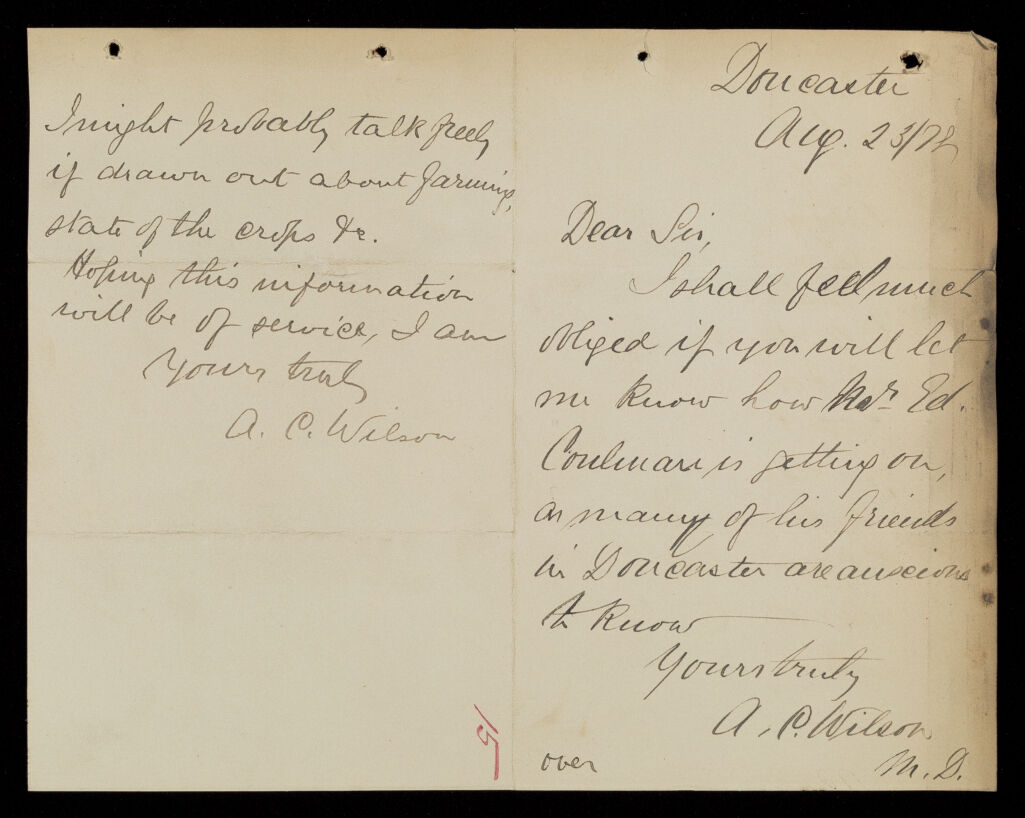 Doncaster
Aug. 23/78
Dear Sir,
I shall feel much
obliged if you will let
me know how Mr. Ed.
Coulman is getting on,
as many of his friends
in Doncaster are anxious
to know
Yours truly
A. C. Wilson
M. D.
over
& might probably talk freely
if drawn out about farming,
state of the crops &c.
Hoping this information
will be of service, I am
Yours truly
A. C. Wilson